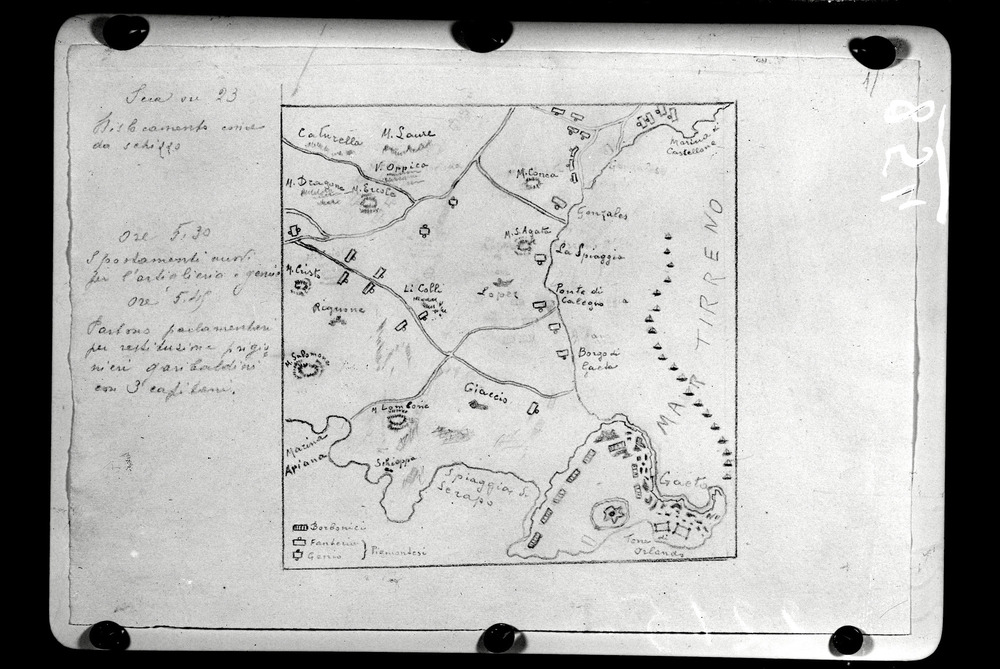 Sera su 23
Dislocamento come
da schizzo
Ore 5,30
Spostamenti
per l'artiglieria e genio
Ore 5,45
Partono parlamentari
per restituzione prigio
nieri garibaldini
con 3 capitani.
Caturella
M. Laure
V. Oppico
M. Dragone
M. Ercole
M. Conca
Marina di
Castellone
Gonzales
M. S. Agata
La Spiaggia
M. Cristo
Li Colli
Lopez
Ponte di
Calegno
Rignone
M. Salomone
Borgo di
Gaeta
Giaccio
M. Lombone
Marina
Ariana
Schioppa
Spiaggia di
Serapo
MAR TIRRENO
Gaeta
Torre di
Orlando
Borbonici
Fanteria
Genio
Piemontesi